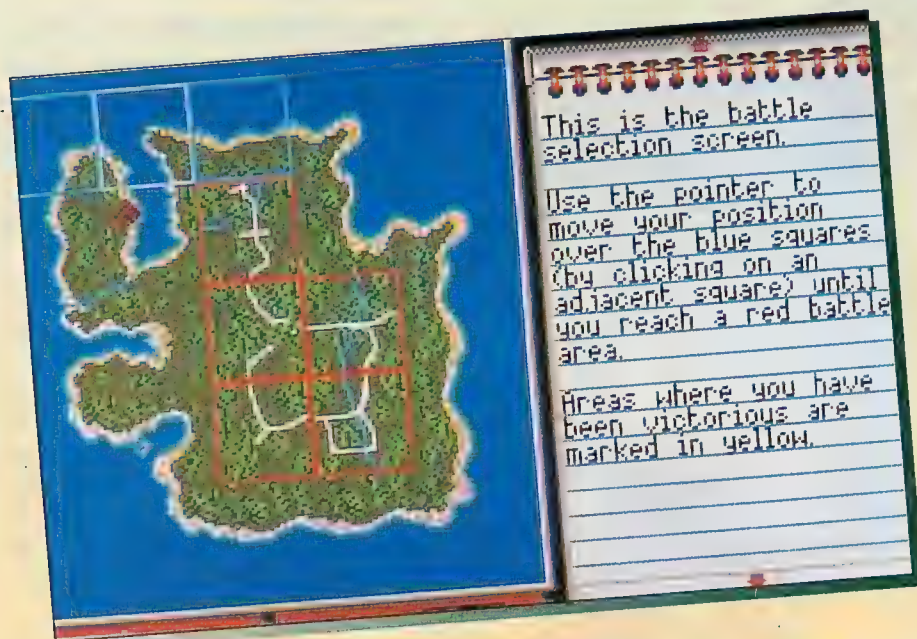 This is the battle
selection screen.
Use the pointer to
move your position
over the blue squares
(by clicking on an
adjacent square) until
you reach a red battle
area.
Areas where you have
been victorious are
marked in yellow.